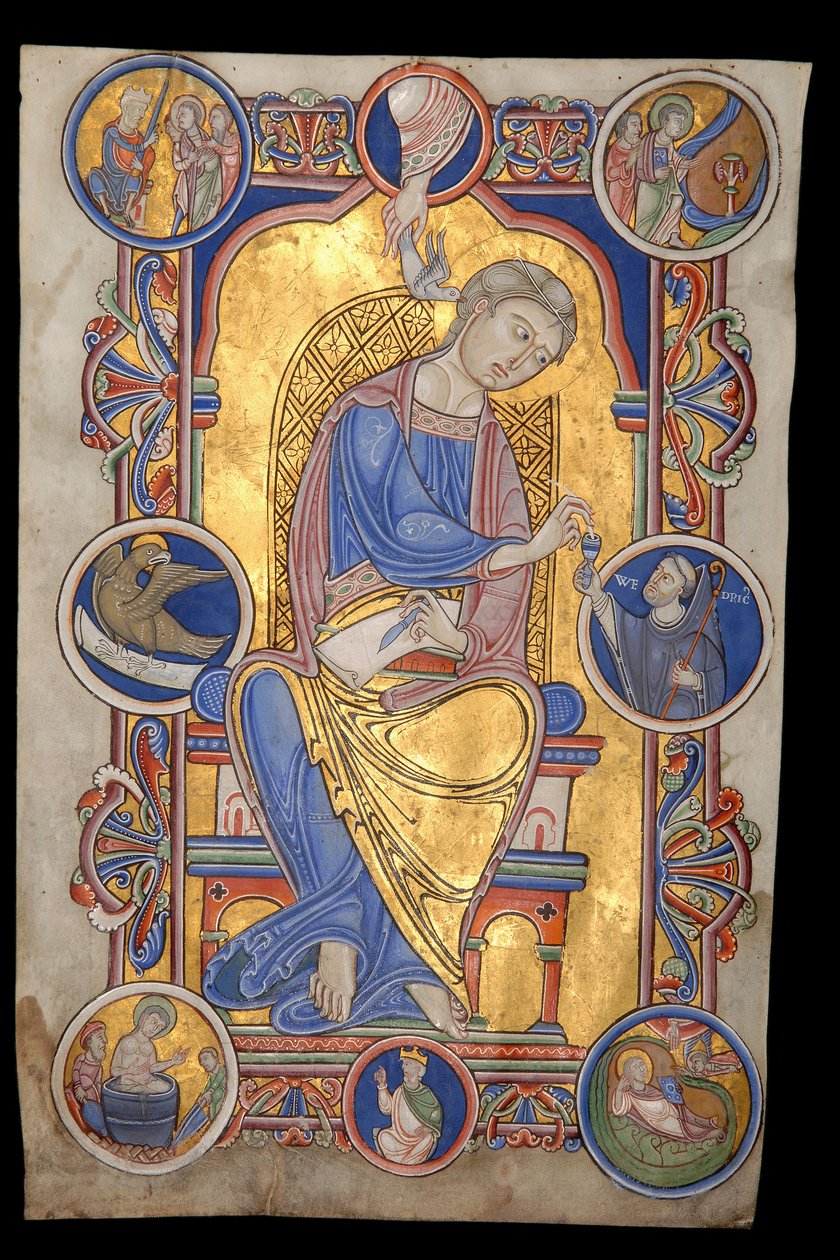 WE
DRIC᾽